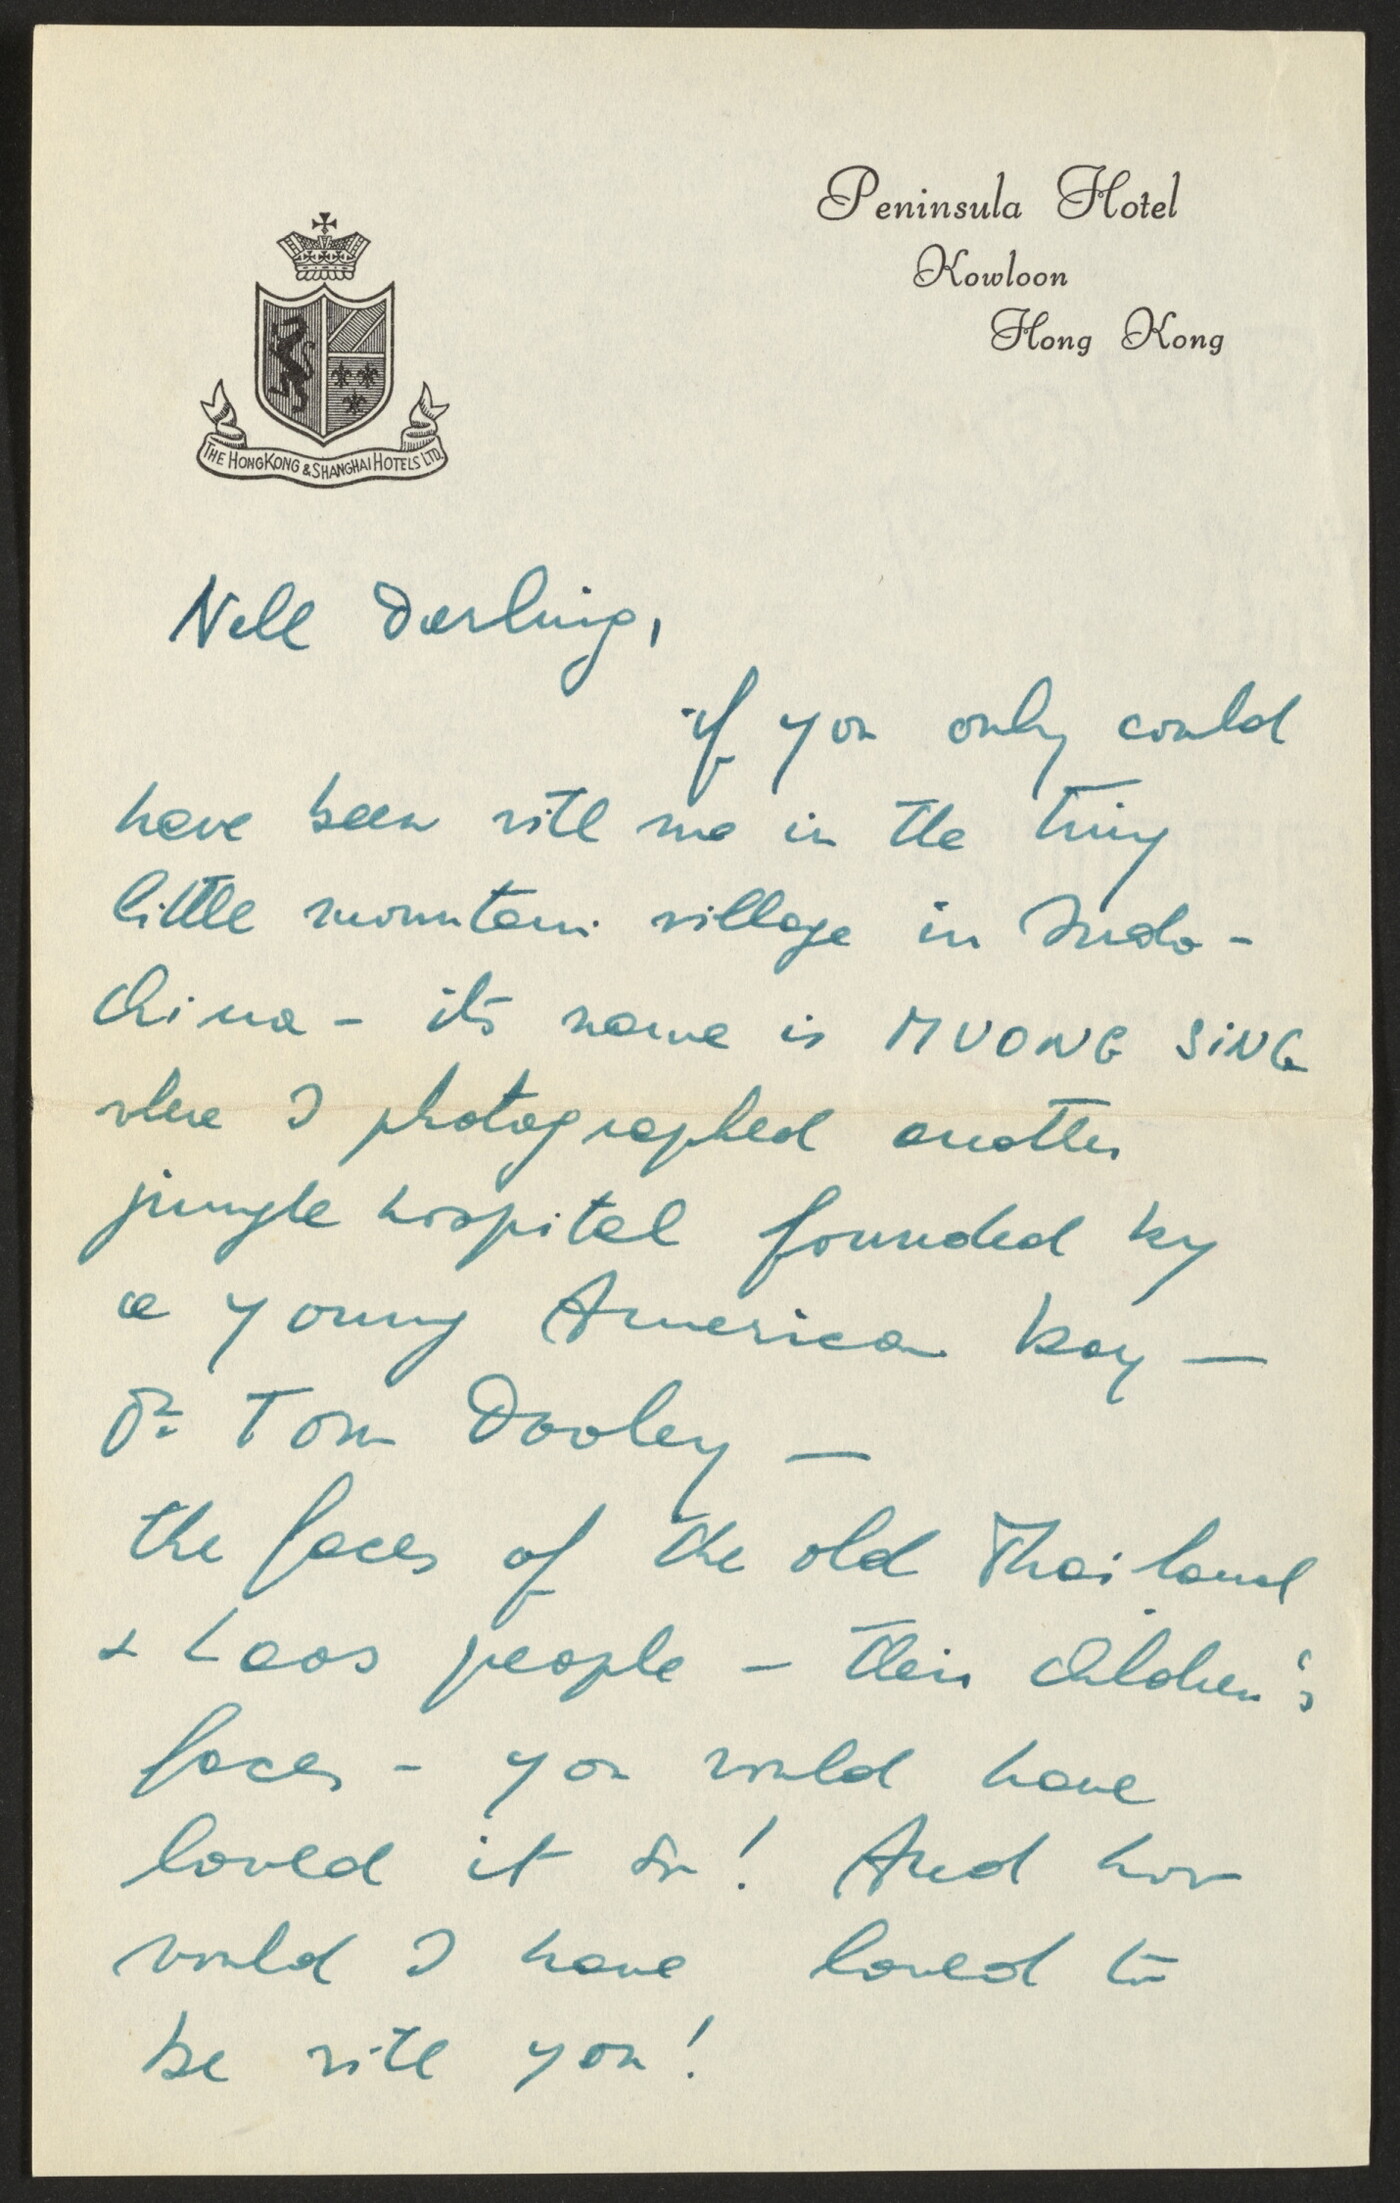 Peninsula Hotel
Kowloon
Hong Kong
THE HONGKONG & SHANGHAI HOTELS LTD.
Nell Darling,
if you only could
have been with me in the tiny
little mountain village in Indo-
China - its name is MUONG SING
where I photographed another
jungle hospital founded by
a young American boy —
Dr Tom Dooley —
the faces of the old Thailand
& Laos people - their children's
faces - you would have
loved it so! And how
would I have loved to
be with you!